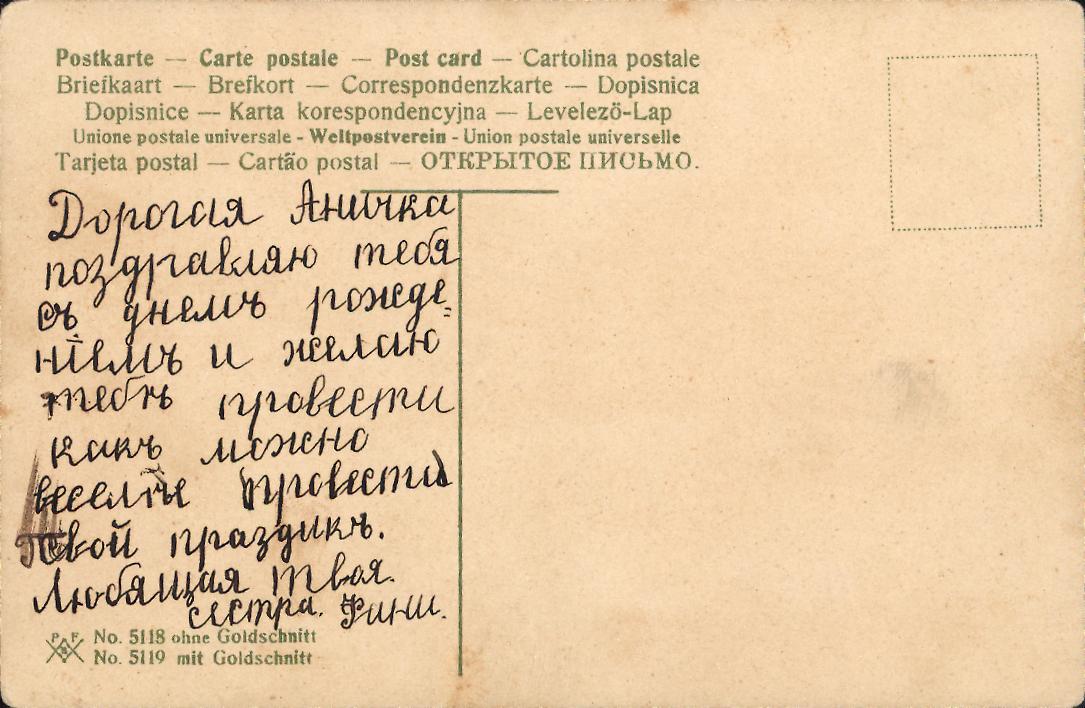 Postkarte — Carte postale — Post card — Cartolina postale
Briefkaart — Brefkort — Correspondenzkarte — Dopisnica
Dopisnice — Karta korespondencyjna — Levelező-Lap
Unione postale universale - Weltpostverein - Union postale universelle
Tarjeta postal — Cartão postal — ОТКРЫТОЕ ПИСЬМО.
Дорогая Аничка
поздравляю тебя
съ днемъ рожде=
нiемъ и желаю
тебѣ провести
какъ можно
веселѣе провести
твой праздикъ.
Любящая твоя.
сестра. Фини.
P F B
No. 5118 ohne Goldschnitt
No. 5119 mit Goldschnitt